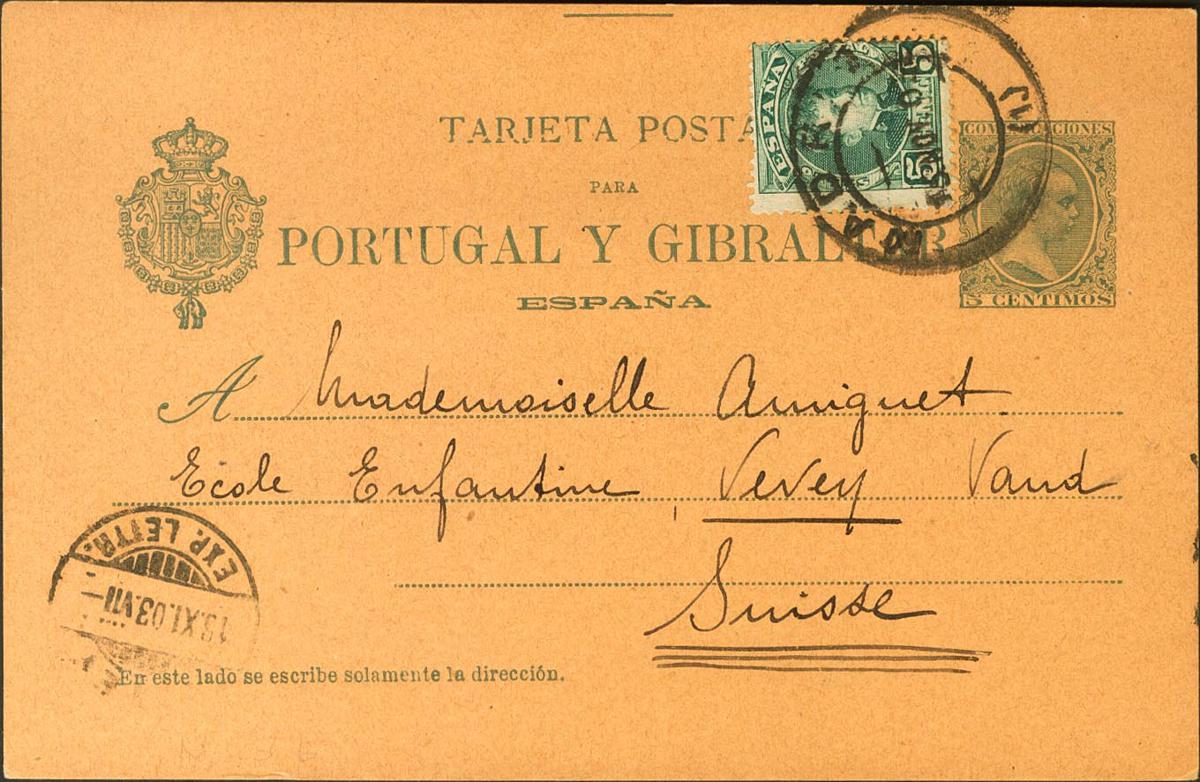 TARJETA POSTA
PARA
PORTUGAL Y GIBRALTAR
ESPAÑA
ESPAÑA
5
5
MADRID
NOV
COMUNICACIONES
5 CENTIMOS
A Mademoiselle Amiguet.
Ecole Enfantine Vevey Vaud
Suisse
EXP. LETTR.
XI.03.VII
En este lado se escribe solamente la dirección.